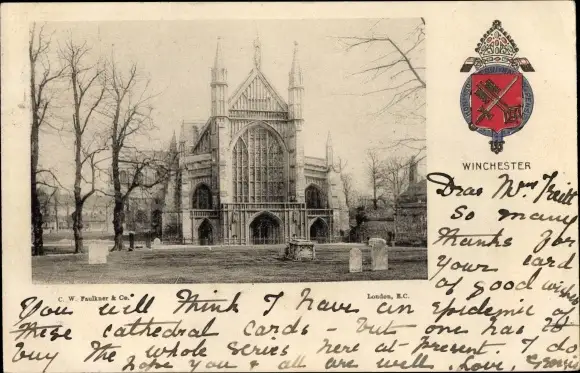 WINCHESTER
C. W. Faulkner & Co.
London, E.C.
Dear Mrs
So many
thanks for
your card
of good wishes
You will think I have an epidemic of
these cathedral cards - but one has to
buy the whole series here at present. I do
hope you & all are well. Love,